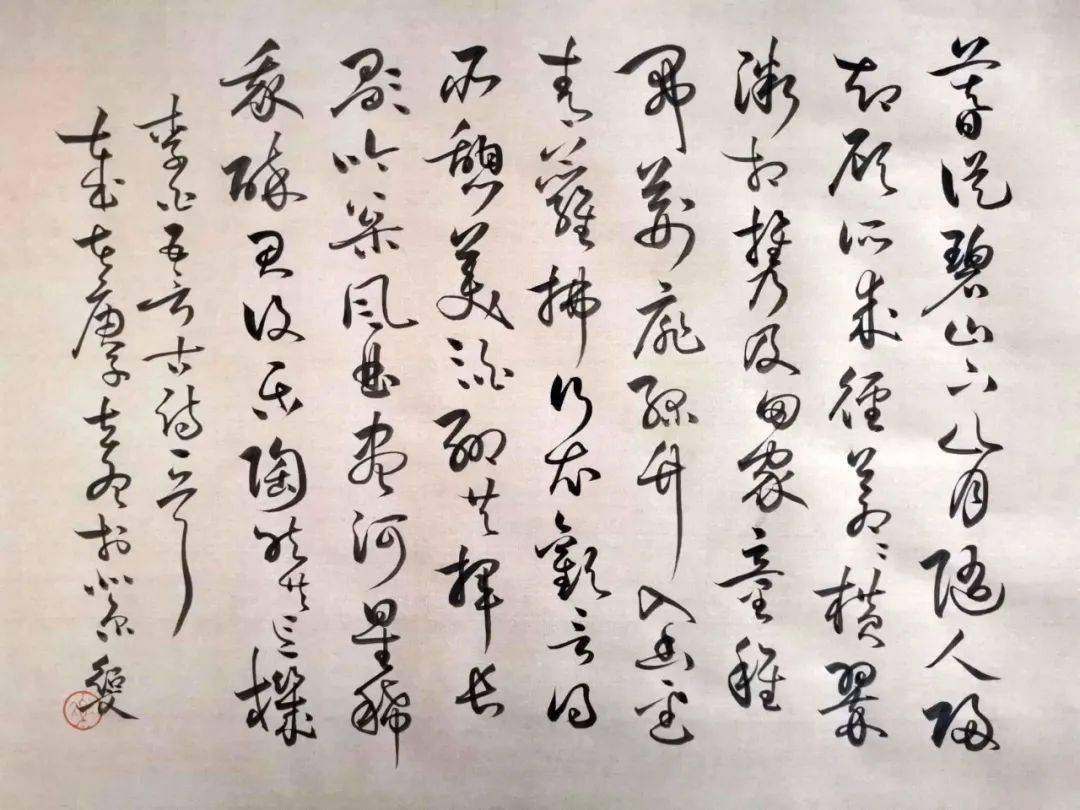 暮從碧山下山月隨人歸
却顧所來徑蒼〻橫翠
微相攜及田家童稚
開荊扉綠竹入幽徑
青蘿拂行衣歡言得
所憩美酒聊共揮長
歌吟松風曲盡河星稀
我醉君復樂陶然共忘機
李白五言古詩一
歲在庚子於北京